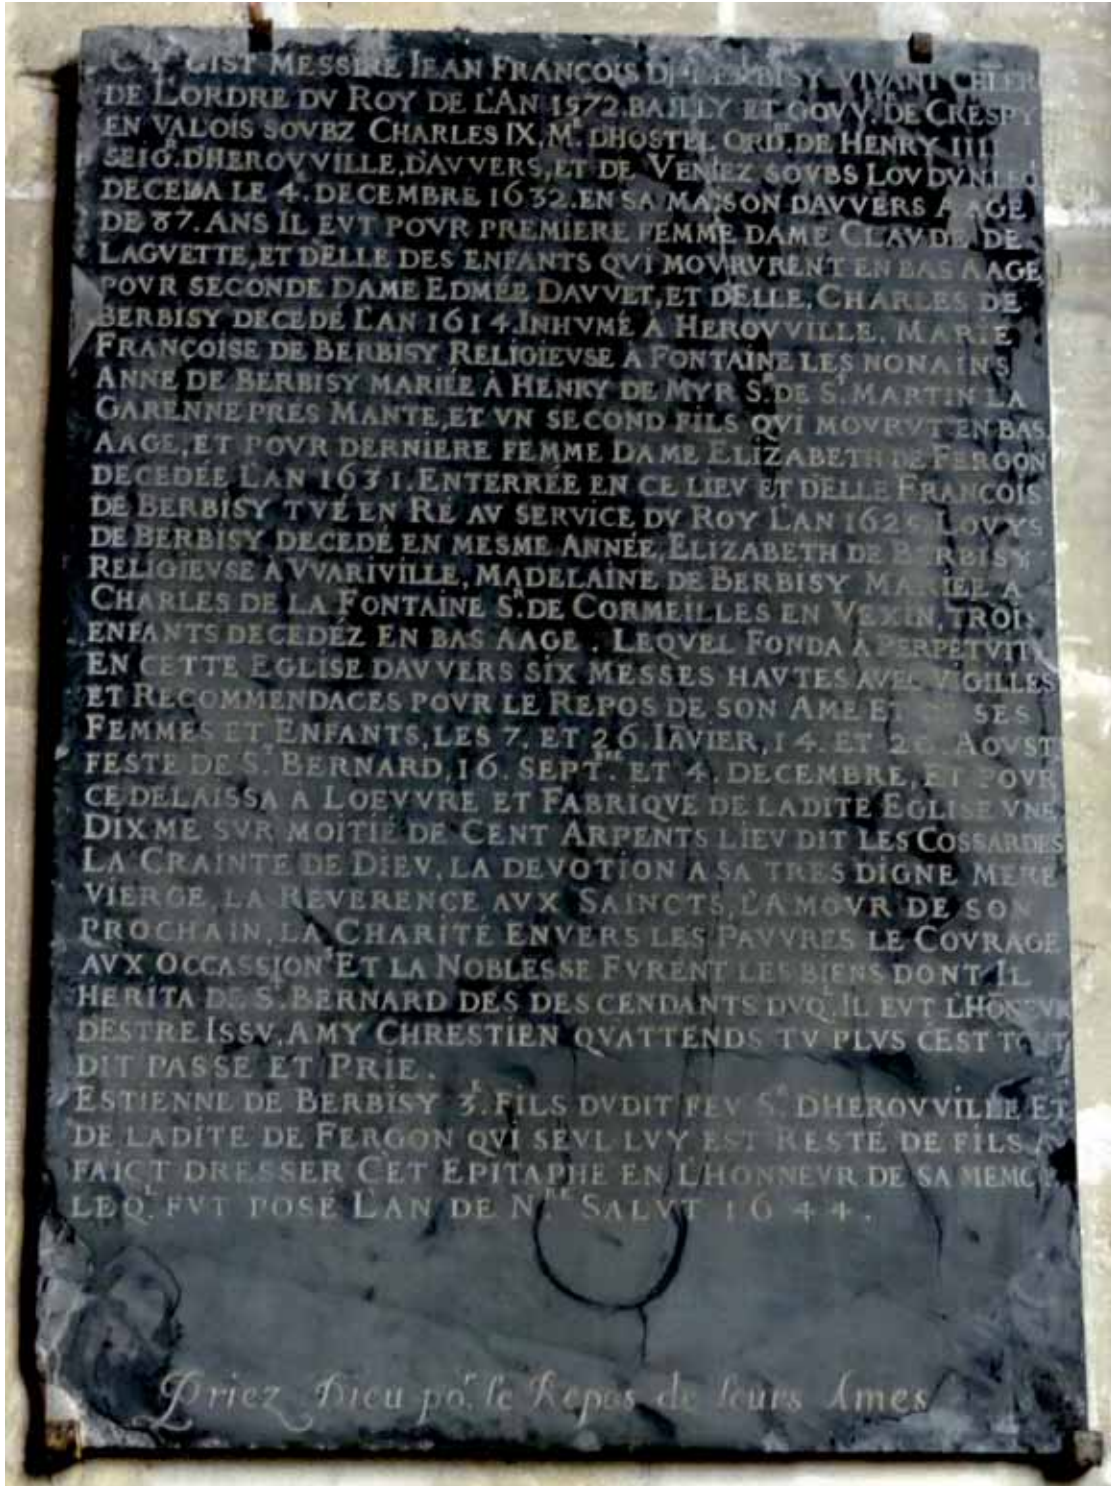 CY GIST MESSIRE IEAN FRANÇOIS DE BERBISY VIVANT CHLER
DE LORDRE DV ROY DE L'AN 1572. BAILLY ET GOVV. DE CRESPY
EN VALOIS SOVBZ CHARLES IX, Mᴱ. DHOSTEL ORD. DE HENRY IIII
SEIGᴿ. DHEROVVILLE, DAVVERS, ET DE VENIEZ SOVBS
DECEDA LE 4. DECEMBRE 1632. EN SA MAISON DAVVERS A AGE
DE 87. ANS IL EVT POVR PREMIERE FEMME DAME CLAVDE DE
LAGVETTE, ET DELLE DES ENFANTS QVI MOVRVRENT EN BAS AAGE
POVR SECONDE DAME EDMÉE DAVVET, ET DELLE, CHARLES DE
BERBISY DECEDÉ L'AN 1614. INHVMÉ A HEROVVILLE, MARIE
FRANÇOISE DE BERBISY RELIGIEVSE A FONTAINE LES NONAINS
ANNE DE BERBISY MARIÉE A HENRY DE MYR Sᴿ. DE Sᵀ. MARTIN LA
GARENNE PRES MANTE, ET VN SECOND FILS QVI MOVRVT EN BAS
AAGE, ET POVR DERNIERE FEMME DAME ELIZABETH DE FERGON
DECEDÉE L'AN 1631. ENTERRÉE EN CE LIEV ET DELLE FRANÇOIS
DE BERBISY TVÉ EN RÉ AV SERVICE DV ROY L'AN 1625 LOVYS
DE BERBISY DECEDÉ EN MESME ANNÉE, ELIZABETH DE BERBISY
RELIGIEVSE A VVARIVILLE, MADELAINE DE BERBISY MARIÉE A
CHARLES DE LA FONTAINE Sᴿ. DE CORMEILLES EN VEXIN, TROIS
ENFANTS DECEDÉZ EN BAS AAGE. LEQVEL FONDA A PERPETVITÉ
EN CETTE EGLISE DAVVERS SIX MESSES HAVTES AVEC VIGILLES
ET RECOMMENDACES POVR LE REPOS DE SON AME ET DE SES
FEMMES ET ENFANTS, LES 7. ET 26. IĀVIER, 14. ET 20. AOVST
FESTE DE Sᵀ. BERNARD, 16. SEPTᴮᴿᴱ. ET 4. DECEMBRE, ET POVR
CE DELAISSA A LOEVVRE ET FABRIQVE DE LADITE EGLISE VNE
DIXME SVR MOITIÉ DE CENT ARPENTS LIEV DIT LES COSSARDES
LA CRAINTE DE DIEV, LA DEVOTION A SA TRES DIGNE MERE
VIERGE, LA REVERENCE AVX SAINCTS, L'AMOVR DE SON
PROCHAIN, LA CHARITÉ ENVERS LES PAVVRES LE COVRAGE
AVX OCCASSIONˢ ET LA NOBLESSE FVRENT LES BIENS DONT IL
HERITA DE Sᵀ. BERNARD DES DESCENDANTS DVQᴸ. IL EVT L'HONEVR
DESTRE ISSV, AMY CHRESTIEN QVATTENDS TV PLVS CEST TOVT
DIT PASSE ET PRIE.
ESTIENNE DE BERBISY 3ᴱ. FILS DVDIT FEV Sᴿ. DHEROVVILLE ET
DE LADITE DE FERGON QVI SEVL LVY EST RESTÉ DE FILS A
FAICT DRESSER CET EPITAPHE EN L'HONNEVR DE SA MEMCE
LEQᴸ. FVT POSÉ L'AN DE Nᴿᴱ SALVT 1644.
Priez Dieu poʳ. le Repos de leurs Ames